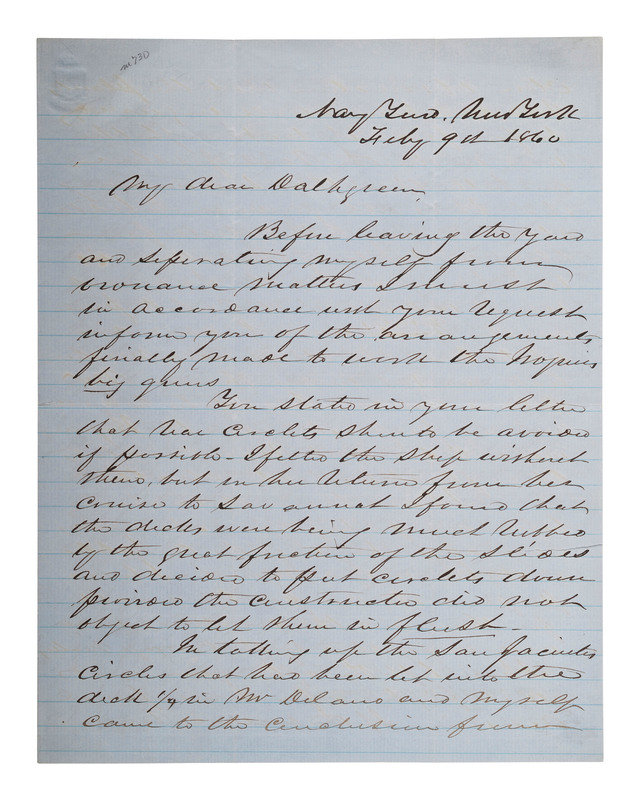 No 730
Navy Yard. New York
Feby 9th 1860
My dear Dalhgreen,
Before leaving the Yard
and seperating myself from
ordnance matters I must
in accordance with your request
inform you of the arrangements
finally made to work the
big guns
You stated in your letter
that rear circlets should be avoided
if possible - I fitted the ship without
them, but in her return from her
cruise to Savannah I found that
the decks were being much rubbed
by the great friction of the slides
and decided to put circlets down
provided the constructor did not
object to let them in flush -
In taking up the San Jacintos
circles that had been let into the
deck 1/4 in Mr Delano and myself
came to the conclusion from